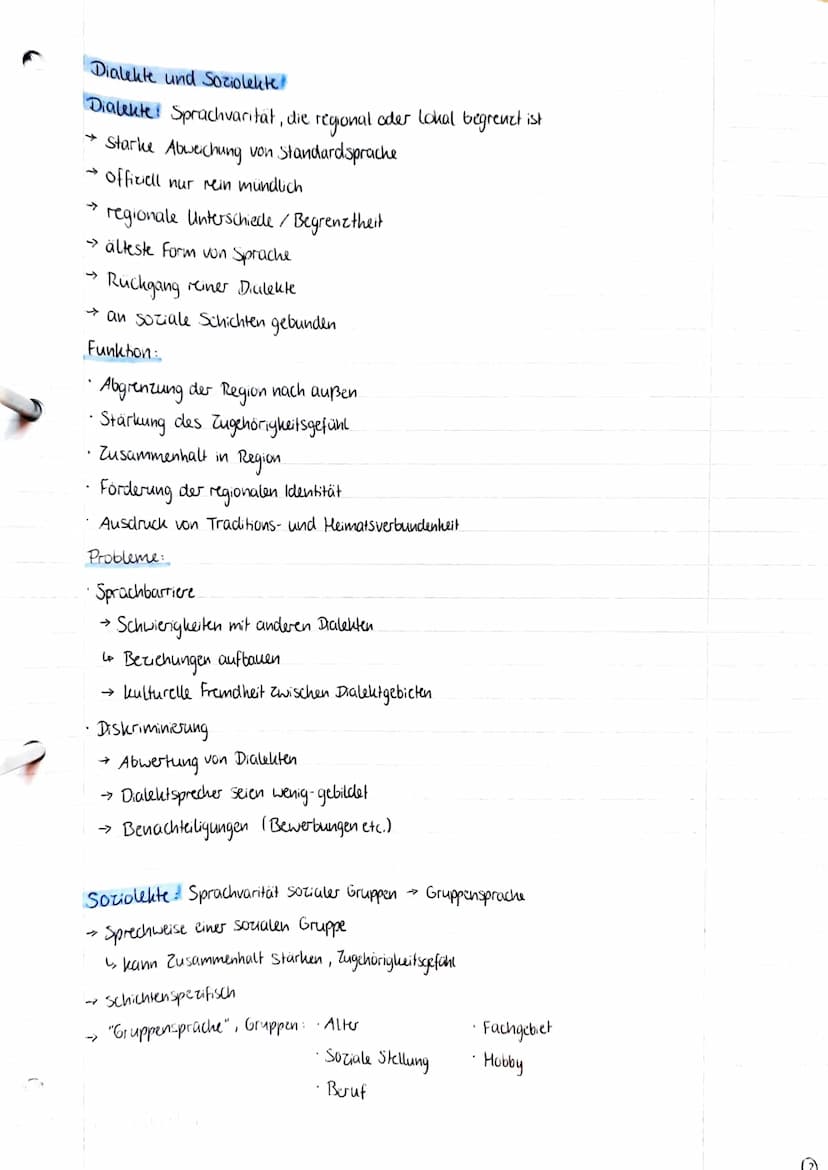 Dialekte und Soziolekte!
Dialekte: Sprachvarität, die regional oder lokal begrenzt ist
→ starke Abweichung von Standardsprache
→ offiziell nur rein mündlich
→ regionale Unterschiede / Begrenztheit
→ älteste Form von Sprache
→ Rückgang reiner Dialekte
→ an soziale Schichten gebunden
Funktion:
· Abgrenzung der Region nach außen
· Stärkung des Zugehörigkeitsgefühl
· Zusammenhalt in Region
· Förderung der regionalen Identität
· Ausdruck von Traditions- und Heimatsverbundenheit
Probleme:
· Sprachbarriere
→ Schwierigkeiten mit anderen Dialekten
↳ Beziehungen aufbauen
→ kulturelle Fremdheit zwischen Dialektgebieten
· Diskriminierung
→ Abwertung von Dialekten
→ Dialektsprecher seien wenig-gebildet
→ Benachteiligungen (Bewerbungen etc.)
Soziolekte: Sprachvarität sozialer Gruppen → Gruppensprache
→ Sprechweise einer sozialen Gruppe
↳ kann Zusammenhalt stärken, Zugehörigkeitsgefühl
→ schichtenspezifisch
→ "Gruppensprache", Gruppen: · Alter · Fachgebiet
· Soziale Stellung · Hobby
· Beruf